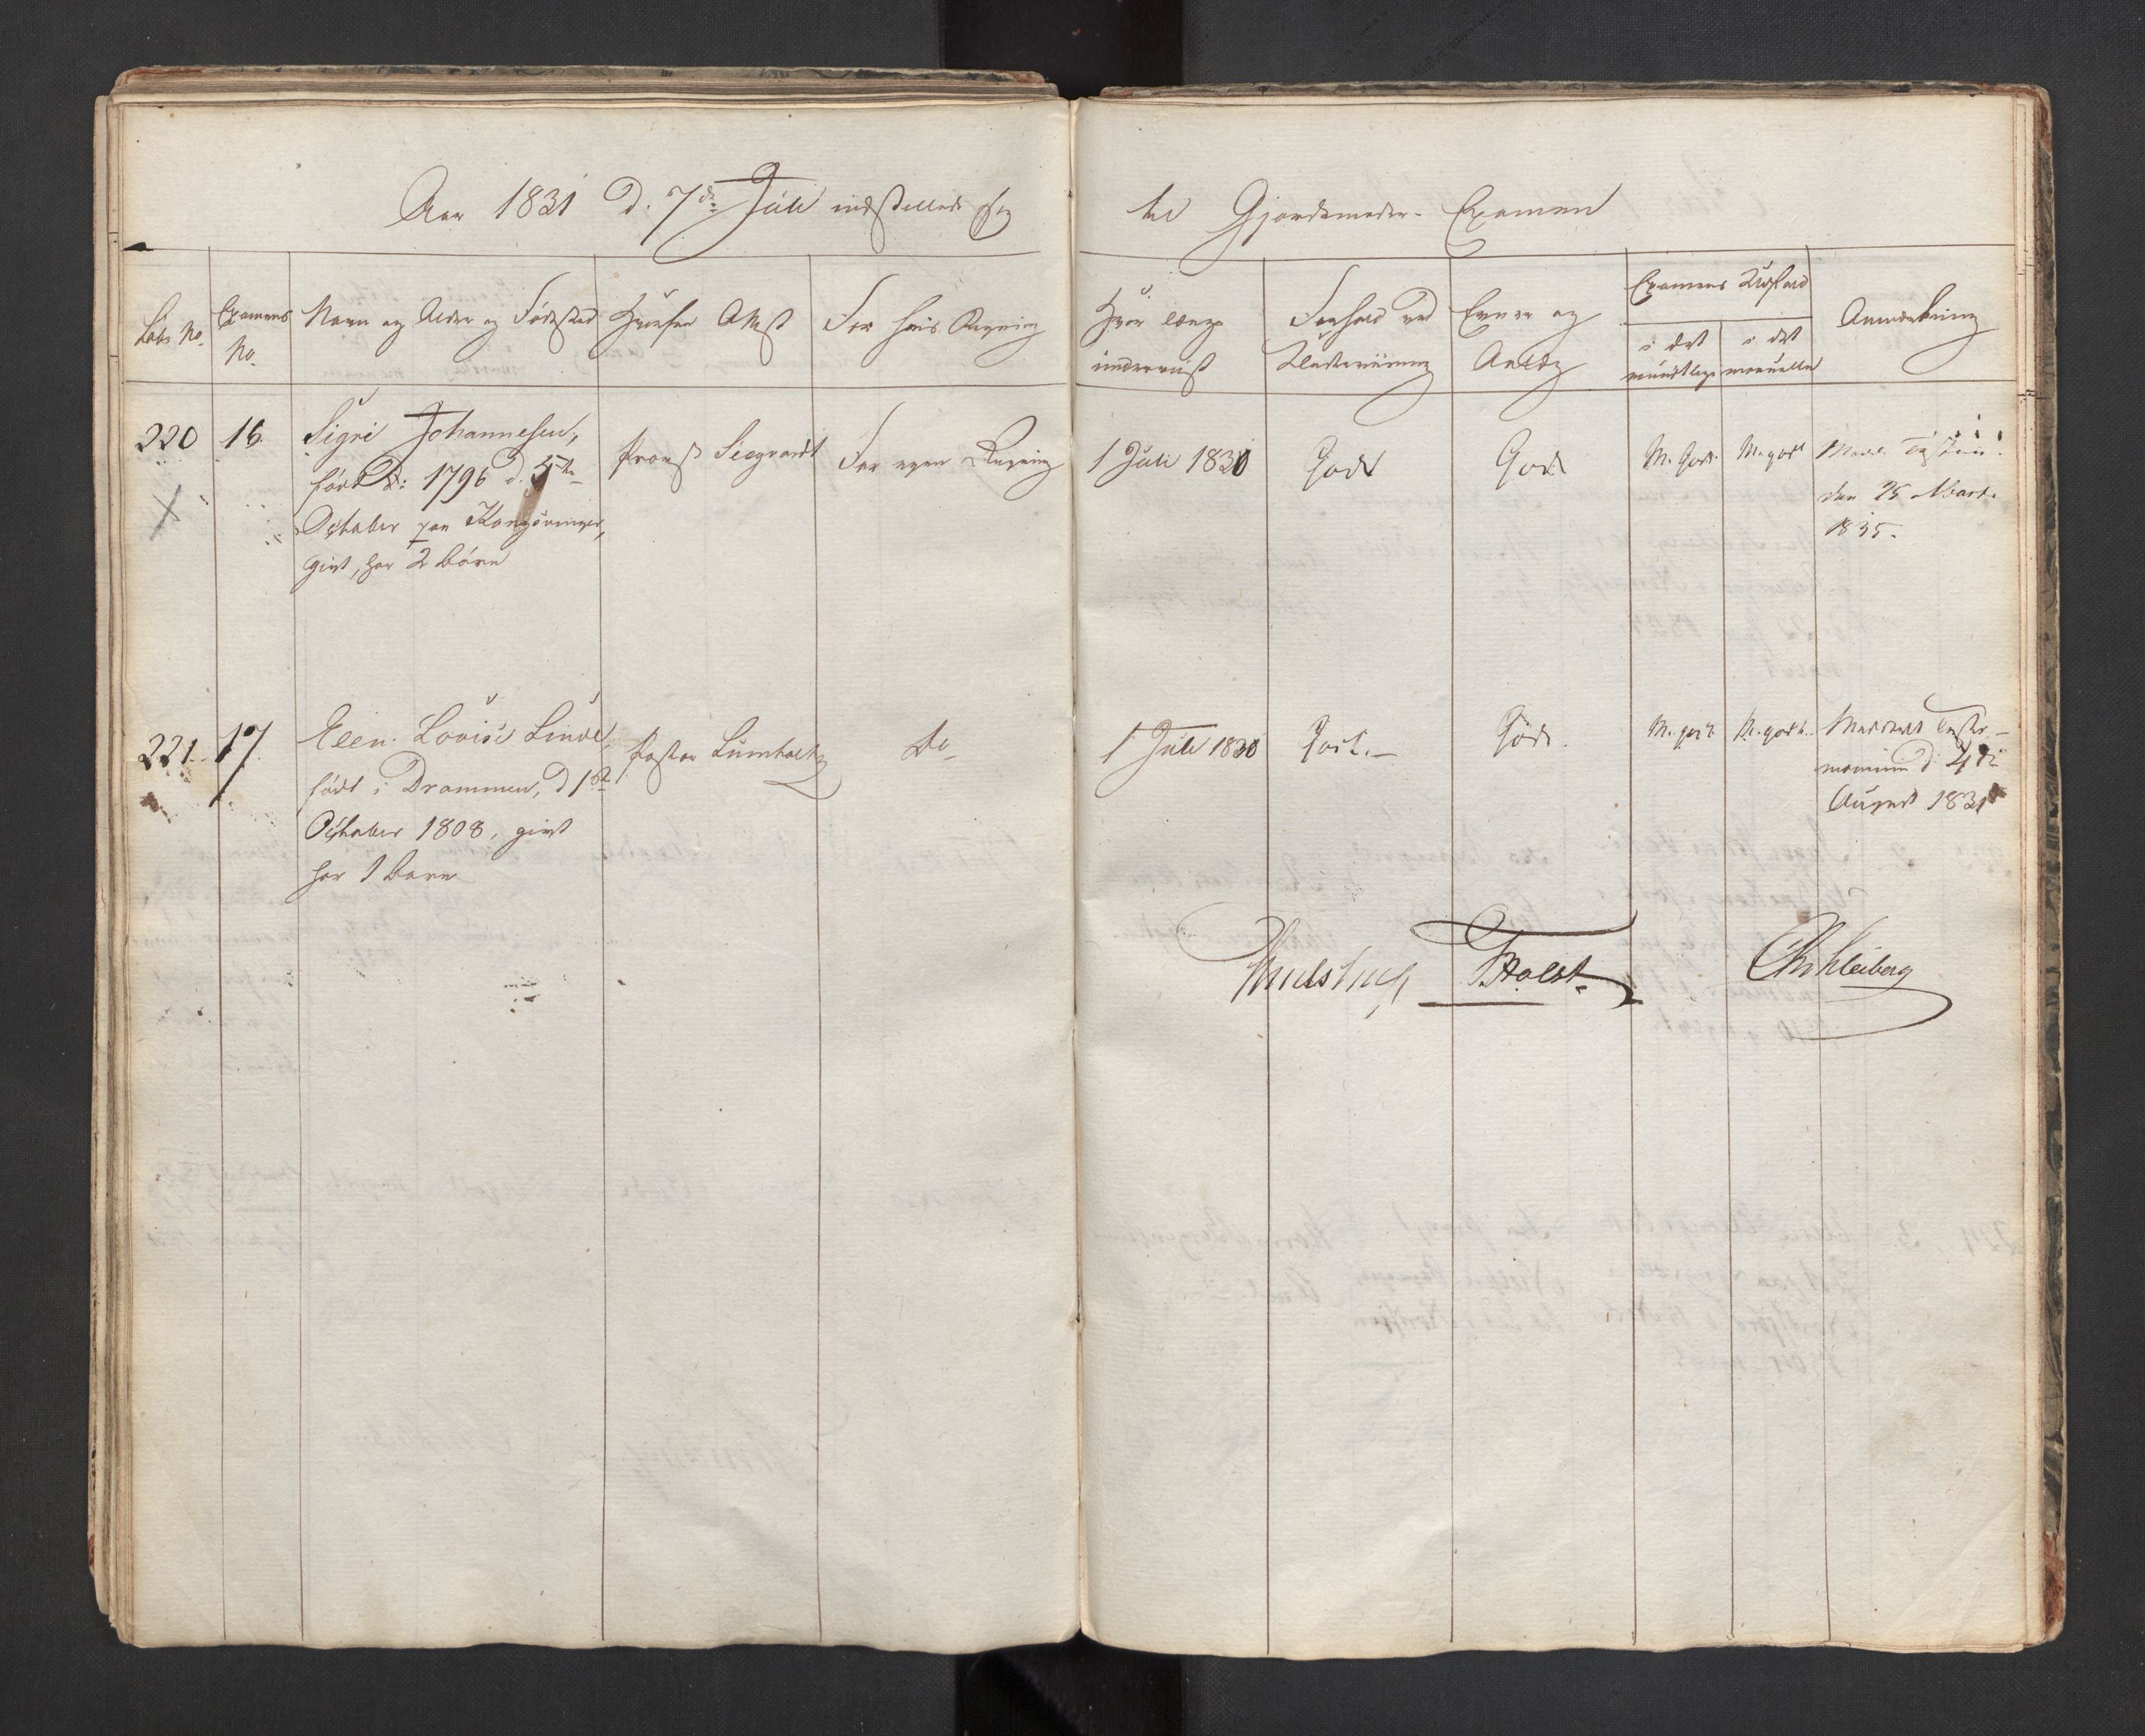 Aar 1831 d. 7de Juli indstillede sig til Gjordemoder-Examen
Løbe No.
Examens No.
Navn og Alder og Fødested
Hvorfra
For hvis Regning
Hvor længe underviist
Forhold ved Underviisning
Evner og Anlæg
Examens Udfald
i det mundtlige
i det manuelle
Anmærkning
220
16.
Signe Johannesen,
født 1796 d. 5te
October paa Kongsvinger,
givt, har 2 Børn
Provst Siegvardt
For egen Regning
1 Juli 1830
Godt
Gode
M. Godt.
M. godt
den 25 Marts
1835.
221.
17.
Elen Lovise Linde,
født i Drammen, d 1ste
October 1808, givt
har 1 Barn
Pastor Lumholtz
Do
1 Juli 1830
Godt.
Gode.
M. godt
M. godt.
Meddeelt Testi-
monium d 4de
August 1831
Thulstrup F Holst. Chr Heiberg